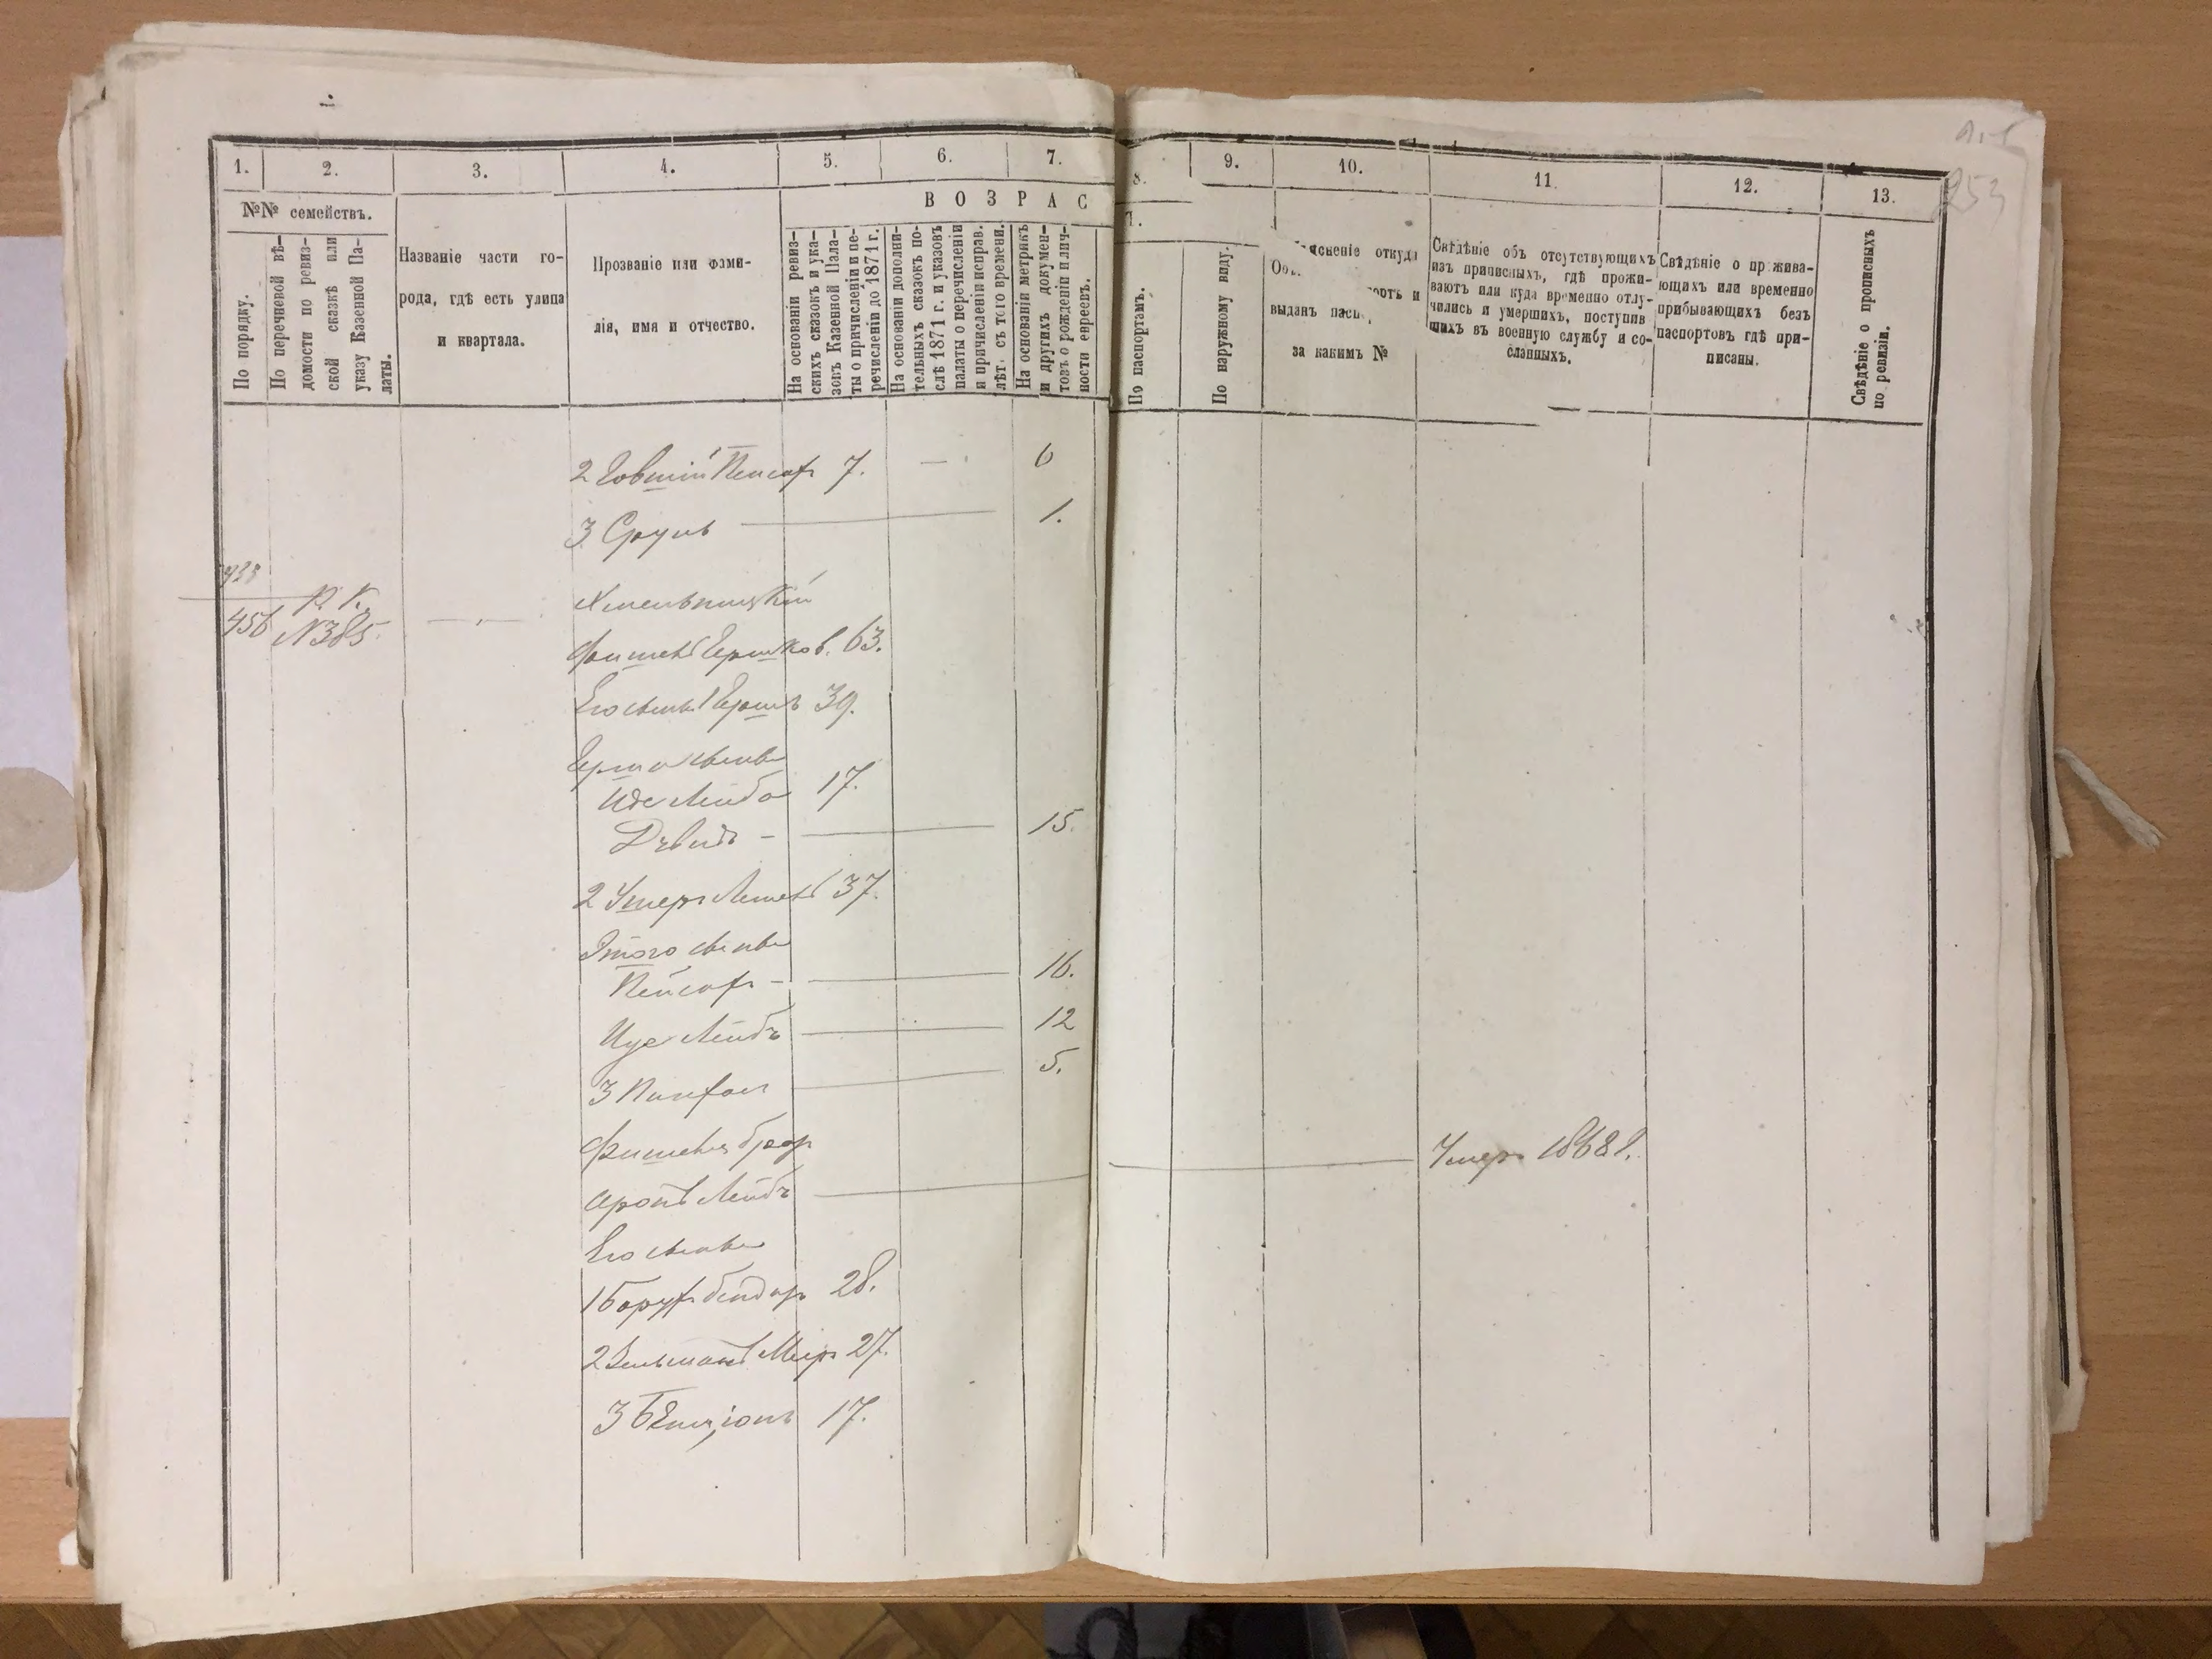 1.
2.
3.
4.
5.
6.
7.
8.
9.
10.
11.
12.
13.
253
№№ семействъ.
ВОЗРАС
Т.
По порядку.
По перечневой вѣ-
домости по ревиз-
ской сказкѣ или
указу Казенной Па-
латы.
Названіе части го-
рода, гдѣ есть улица
и квартала.
Прозваніе или фами-
лія, имя и отчество.
На основаніи ревиз-
скихъ сказокъ и ука-
зовъ Казенной Пала-
ты о причисленіи и пе-
речисленіи до 1871 г.
На основаніи дополни-
тельныхъ сказокъ по-
слѣ 1871 г. и указовъ
палаты о перечисленіи
и причисленіи исправ.
лѣт. съ того времени.
На основаніи метрикъ
и другихъ докумен-
товъ о рожденіи и лич-
ности евреевъ.
По паспортамъ.
По наружному виду.
Об яснѣніе откуда
выданъ пасп ортъ и
за какимъ №
Свѣдѣніе объ отсутствующихъ
изъ приписныхъ, гдѣ прожи-
ваютъ или куда временно отлу-
чились и умершихъ, поступив
шихъ въ военную службу и со-
сланныхъ.
Свѣдѣніе о прожива-
ющихъ или временно
прибывающихъ безъ
паспортовъ гдѣ при-
писаны.
Свѣдѣніе о прописныхъ
по ревизіи.
2 Говшій Пейсах 7. — 6
3 Сруль — 1.
433
456 Р. К. №385. — Хмельницкій
Фишель Гершков. 63.
Его сынъ 1 Гершъ 39.
Герша сыновья
Иде Лейба 17.
Двидъ — 15.
2 Ушеръ Лемель 37.
Этого сыновья
Пейсахъ — 16.
Иде Лейбъ — 12
3 Пинхас — 5.
Фишеля брат
Аронъ Лейбъ — Умеръ 1868 г.
Его сыновья
1 Борух Бендар 28.
2 Зельманъ Меер 27.
3 Бенціонъ 17.